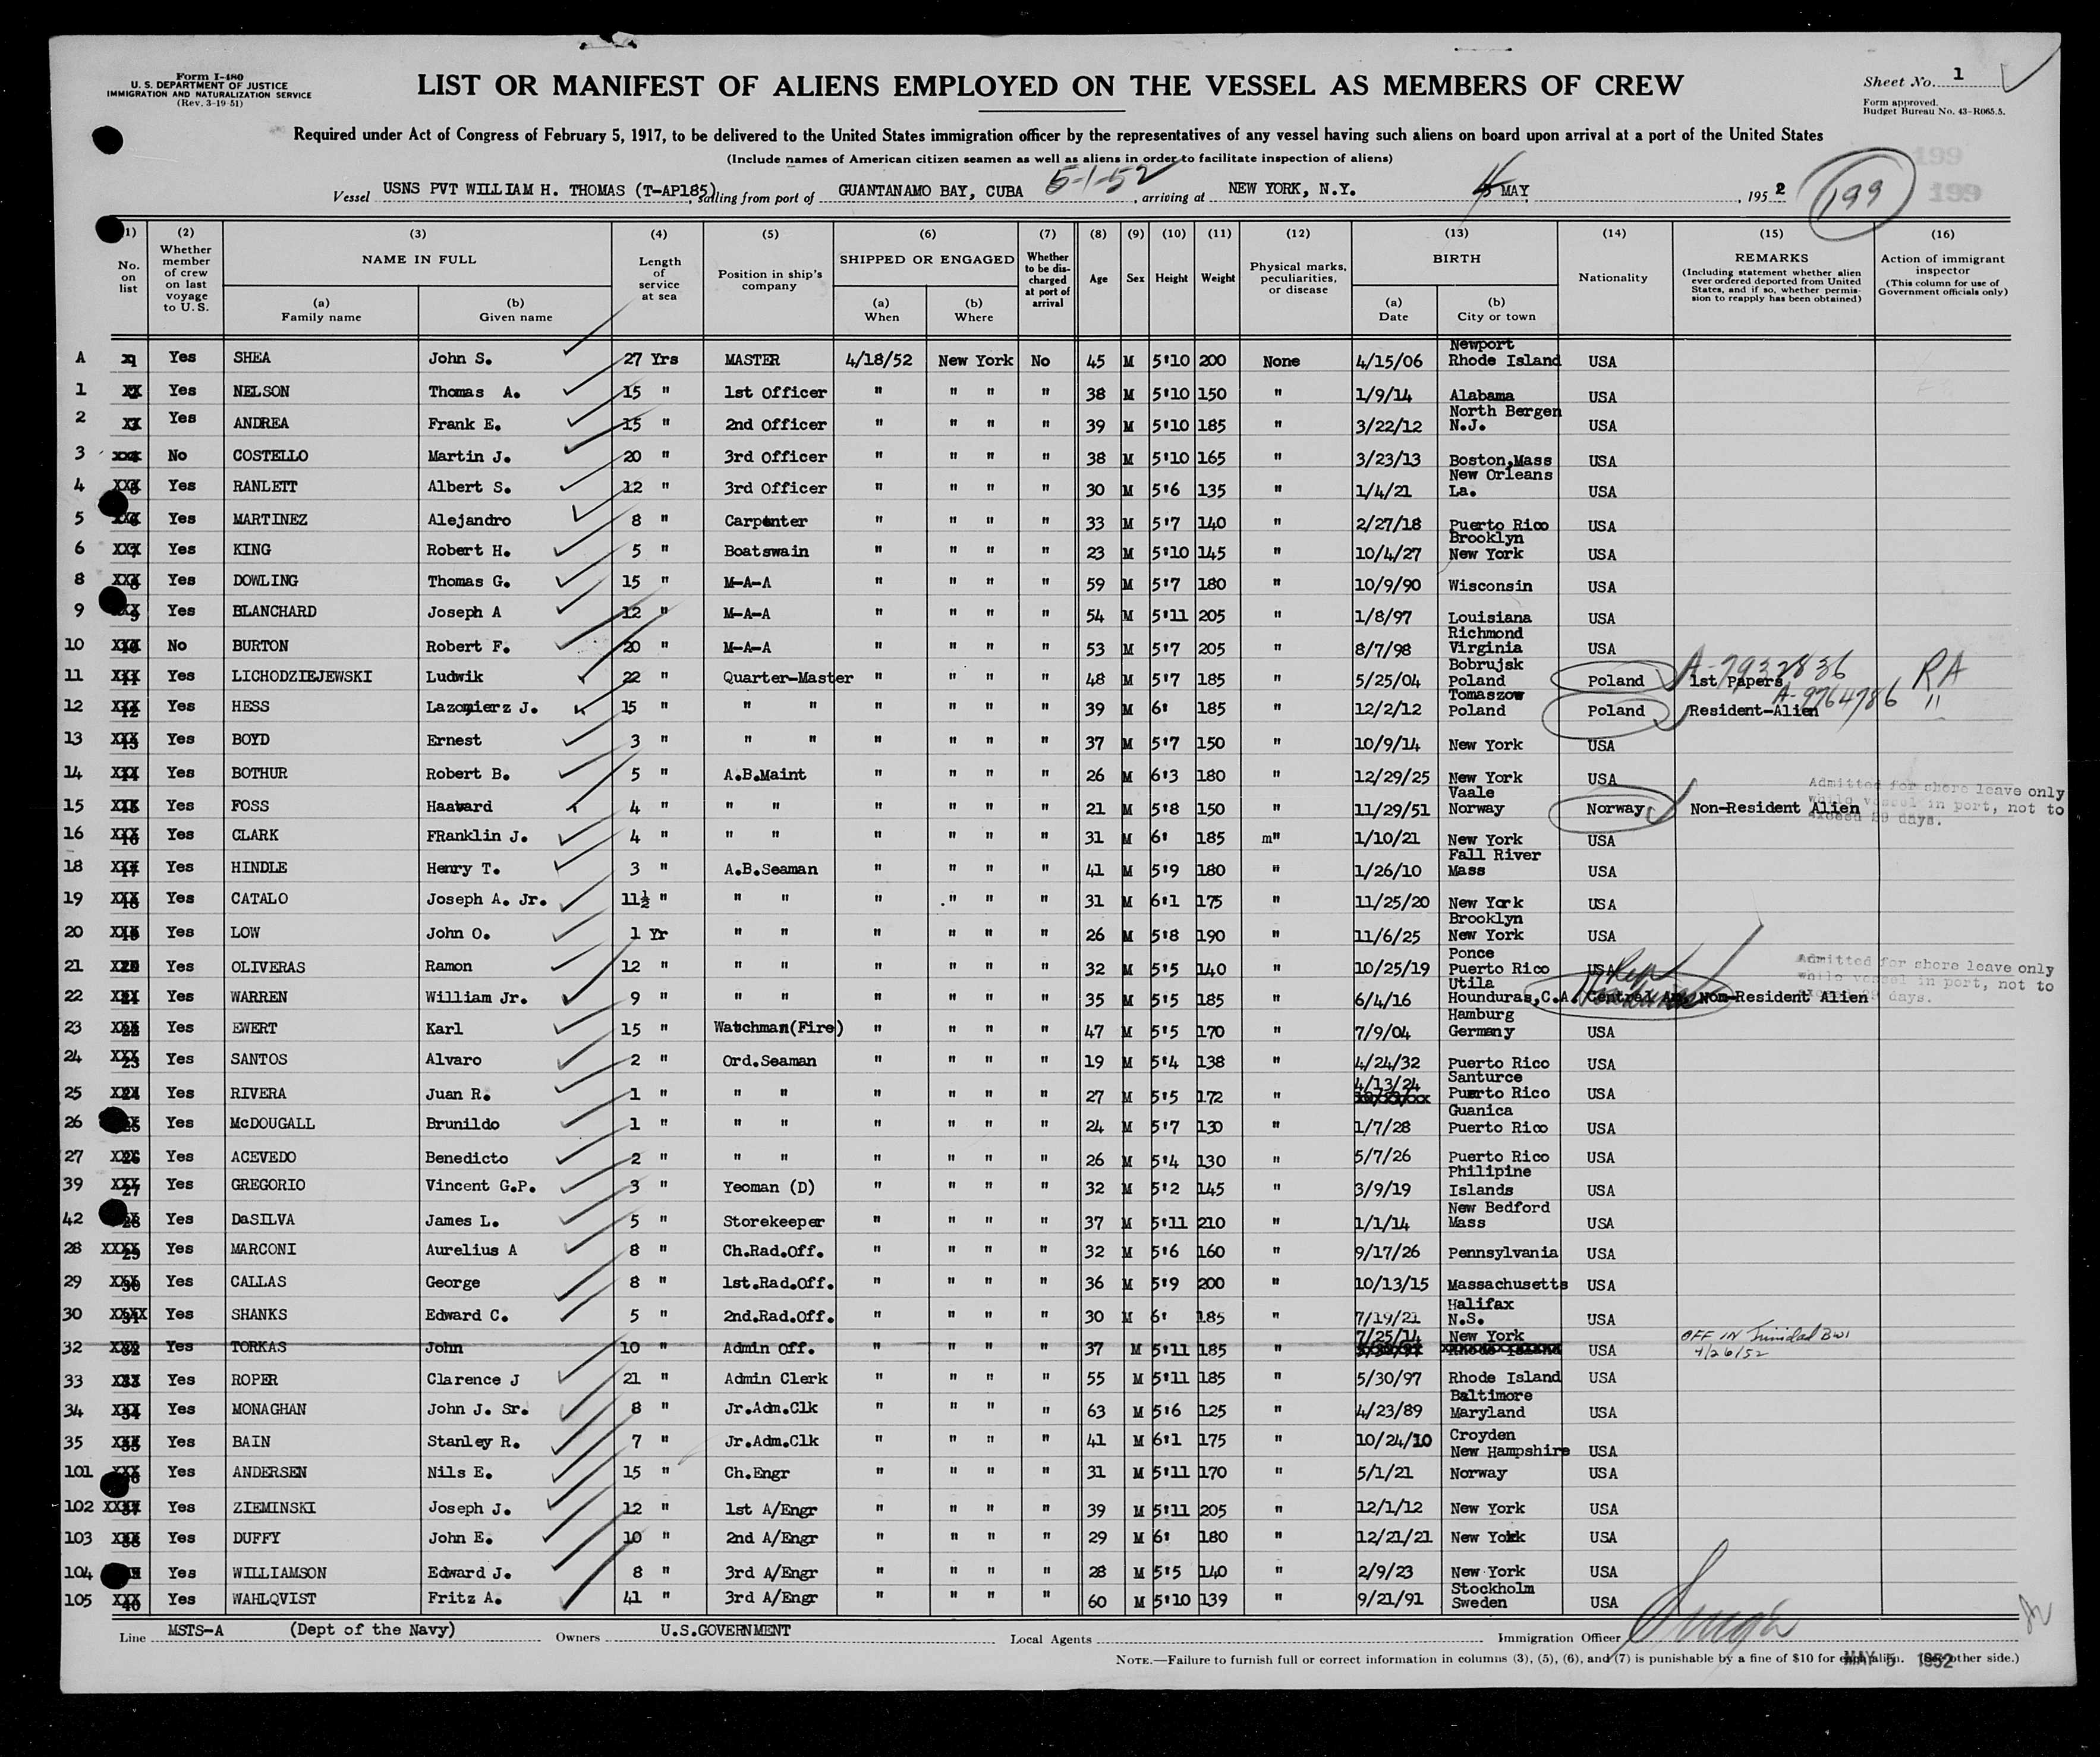 Form I-480
U. S. DEPARTMENT OF JUSTICE
IMMIGRATION AND NATURALIZATION SERVICE
(Rev. 3-19-51)
LIST OR MANIFEST OF ALIENS EMPLOYED ON THE VESSEL AS MEMBERS OF CREW
Sheet No. 1
Form approved.
Budget Bureau No. 43-R065.5.
Required under Act of Congress of February 5, 1917, to be delivered to the United States immigration officer by the representatives of any vessel having such aliens on board upon arrival at a port of the United States
(Include names of American citizen seamen as well as aliens in order to facilitate inspection of aliens)
199
Vessel USNS PVT WILLIAM H. THOMAS (T-AP185), sailing from port of GUANTANAMO BAY, CUBA 5-1-52, arriving at NEW YORK, N.Y. MAY, 1952 199 199
(1) No. on list (2) Whether member of crew on last voyage to U.S. (3) NAME IN FULL (a) Family name (b) Given name (4) Length of service at sea (5) Position in ship's company (6) SHIPPED OR ENGAGED (a) When (b) Where (7) Whether to be discharged at port of arrival (8) Age (9) Sex (10) Height (11) Weight (12) Physical marks, peculiarities, or disease (13) BIRTH (a) Date (b) City or town (14) Nationality (15) REMARKS (Including statement whether alien ever ordered deported from United States, and if so, whether permission to reapply has been obtained) (16) Action of immigrant inspector (This column for use of Government officials only)
A Yes SHEA John S. 27 Yrs MASTER 4/18/52 New York No 45 M 5'10 200 None 4/15/06 Newport Rhode Island USA
1 Yes NELSON Thomas A. 15 " 1st Officer " " " " 38 M 5'10 150 " 1/9/14 Alabama USA
2 Yes ANDREA Frank E. 15 " 2nd Officer " " " " 39 M 5'10 185 " 3/22/12 North Bergen N.J. USA
3 No COSTELLO Martin J. 20 " 3rd Officer " " " " 38 M 5'10 165 " 3/23/13 Boston,Mass USA
4 Yes RANLETT Albert S. 12 " 3rd Officer " " " " 30 M 5'6 135 " 1/4/21 New Orleans La. USA
5 Yes MARTINEZ Alejandro 8 " Carpenter " " " " 33 M 5'7 140 " 2/27/18 Puerto Rico USA
6 Yes KING Robert H. 5 " Boatswain " " " " 23 M 5'10 145 " 10/4/27 Brooklyn New York USA
8 Yes DOWLING Thomas G. 15 " M-A-A " " " " 59 M 5'7 180 " 10/9/90 Wisconsin USA
9 Yes BLANCHARD Joseph A 12 " M-A-A " " " " 54 M 5'11 205 " 1/8/97 Louisiana USA
10 No BURTON Robert F. 20 " M-A-A " " " " 53 M 5'7 205 " 8/7/98 Richmond Virginia USA
11 Yes LICHODZIEJEWSKI Ludwik 22 " Quarter-Master " " " " 48 M 5'7 185 " 5/25/04 Bobrujsk Poland Poland 1st Papers A-7932836 RA
12 Yes HESS Lazomierz J. 15 " " " " " " " 39 M 6' 185 " 12/2/12 Tomaszow Poland Poland Resident-Alien A-9764786 "
13 Yes BOYD Ernest 3 " " " " " " " 37 M 5'7 150 " 10/9/14 New York USA
14 Yes BOTHUR Robert B. 5 " A.B.Maint " " " " 26 M 6'3 180 " 12/29/25 New York USA
15 Yes FOSS Haavard 4 " " " " " " " 21 M 5'8 150 " 11/29/51 Vaale Norway Norway Non-Resident Alien Admitted for shore leave only while vessel in port, not to exceed 29 days.
16 Yes CLARK FRanklin J. 4 " " " " " " " 31 M 6' 185 m" 1/10/21 New York USA
18 Yes HINDLE Henry T. 3 " A.B.Seaman " " " " 41 M 5'9 180 " 1/26/10 Fall River Mass USA
19 Yes CATALO Joseph A. Jr. 11½ " " " " " " " 31 M 6'1 175 " 11/25/20 New York USA
20 Yes LOW John O. 1 Yr " " " " " " 26 M 5'8 190 " 11/6/25 Brooklyn New York USA
21 Yes OLIVERAS Ramon 12 " " " " " " " 32 M 5'5 140 " 10/25/19 Ponce Puerto Rico USA
22 Yes WARREN William Jr. 9 " " " " " " " 35 M 5'5 185 " 6/4/16 Utila Hounduras,C.A. Central Am. Rep Honduras Non-Resident Alien Admitted for shore leave only while vessel in port, not to exceed 29 days.
23 Yes EWERT Karl 15 " Watchman(Fire) " " " " 47 M 5'5 170 " 7/9/04 Hamburg Germany USA
24 Yes SANTOS Alvaro 2 " Ord.Seaman " " " " 19 M 5'4 138 " 4/24/32 Puerto Rico USA
25 Yes RIVERA Juan R. 1 " " " " " " " 27 M 5'5 172 " 4/13/24 Santurce Puerto Rico USA
26 Yes McDOUGALL Brunildo 1 " " " " " " " 24 M 5'7 130 " 1/7/28 Guanica Puerto Rico USA
27 Yes ACEVEDO Benedicto 2 " " " " " " " 26 M 5'4 130 " 5/7/26 Puerto Rico USA
39 Yes GREGORIO Vincent G.P. 3 " Yeoman (D) " " " " 32 M 5'2 145 " 3/9/19 Philipine Islands USA
42 Yes DaSILVA James L. 5 " Storekeeper " " " " 37 M 5'11 210 " 1/1/14 New Bedford Mass USA
28 Yes MARCONI Aurelius A 8 " Ch.Rad.Off. " " " " 32 M 5'6 160 " 9/17/26 Pennsylvania USA
29 Yes CALLAS George 8 " 1st.Rad.Off. " " " " 36 M 5'9 200 " 10/13/15 Massachusetts USA
30 Yes SHANKS Edward C. 5 " 2nd.Rad.Off. " " " " 30 M 6' 185 " 7/19/21 Halifax N.S. USA
32 Yes TORKAS John 10 " Admin Off. " " " " 37 M 5'11 185 " 7/25/14 New York USA OFF IN Trinidad BWI 4/26/52
33 Yes ROPER Clarence J 21 " Admin Clerk " " " " 55 M 5'11 185 " 5/30/97 Rhode Island USA
34 Yes MONAGHAN John J. Sr. 8 " Jr.Adm.Clk " " " " 63 M 5'6 125 " 4/23/89 Baltimore Maryland USA
35 Yes BAIN Stanley R. 7 " Jr.Adm.Clk " " " " 41 M 6'1 175 " 10/24/10 Croyden New Hampshire USA
101 Yes ANDERSEN Nils E. 15 " Ch.Engr " " " " 31 M 5'11 170 " 5/1/21 Norway USA
102 Yes ZIEMINSKI Joseph J. 12 " 1st A/Engr " " " " 39 M 5'11 205 " 12/1/12 New York USA
103 Yes DUFFY John E. 10 " 2nd A/Engr " " " " 29 M 6' 180 " 12/21/21 New York USA
104 Yes WILLIAMSON Edward J. 8 " 3rd A/Engr " " " " 28 M 5'5 140 " 2/9/23 New York USA
105 Yes WAHLQVIST Fritz A. 41 " 3rd A/Engr " " " " 60 M 5'10 139 " 9/21/91 Stockholm Sweden USA
Line MSTS-A (Dept of the Navy) Owners U.S.GOVERNMENT Local Agents Immigration Officer
NOTE.—Failure to furnish full or correct information in columns (3), (5), (6), and (7) is punishable by a fine of $10 for each alien. (See other side.)
MAY 5 1952